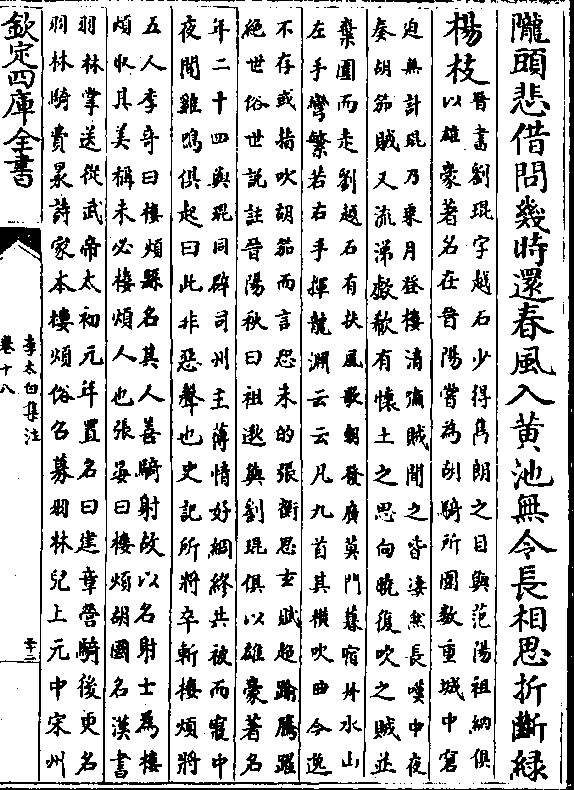 隴頭悲借問幾時還春風入黄池無令長相思折斷緑
楊枝
晉書劉琨字越石少得雋朗之目與范陽祖納俱
以雄豪著名在晉陽嘗為胡騎所圍數重城中窘
迫無計琨乃乗月登樓清嘯賊聞之皆淒然長嘆中夜
奏胡笳賊又流涕歔欷有懐土之思向曉復吹之賊並
棄圍而走劉越石有扶風歌朝發廣莫門暮宿丹水山
左手彎繁若右手揮龍淵云云凡九首其横吹曲今逸
不存或指吹胡笳而言恐未的張衡思玄賦超踰騰躍
絶世俗世說註晉陽秋曰祖逖與劉琨俱以雄豪著名
年二十四與琨同辟司州主薄情好綢繆共被而寢中
夜聞雞鳴俱起曰此非惡聲也史記所將卒斬樓煩將
五人李奇曰樓煩縣名其人善騎射故以名射士為樓
煩取其美稱未必樓煩人也張晏曰樓煩胡國名漢書
羽林掌送從武帝太初元年置名曰建章營騎後更名
羽林騎費昶詩家本樓煩俗召募羽林兒上元中宋州
欽定四庫全書
李太白集注
卷十八